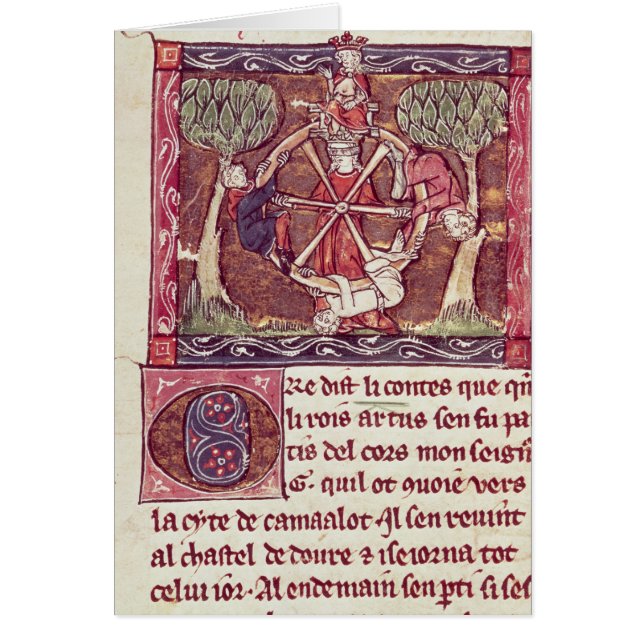 Ore dist li contes que qñ
li rois artus sen fu pa
tis del cors mon seigñ
G. quil ot ꝯuoie vers
la cyte de camaalot. Il sen reuint
al chastel de doure ⁊ iseiorna tot
celui ior. Al endemain sen ꝑti si ses